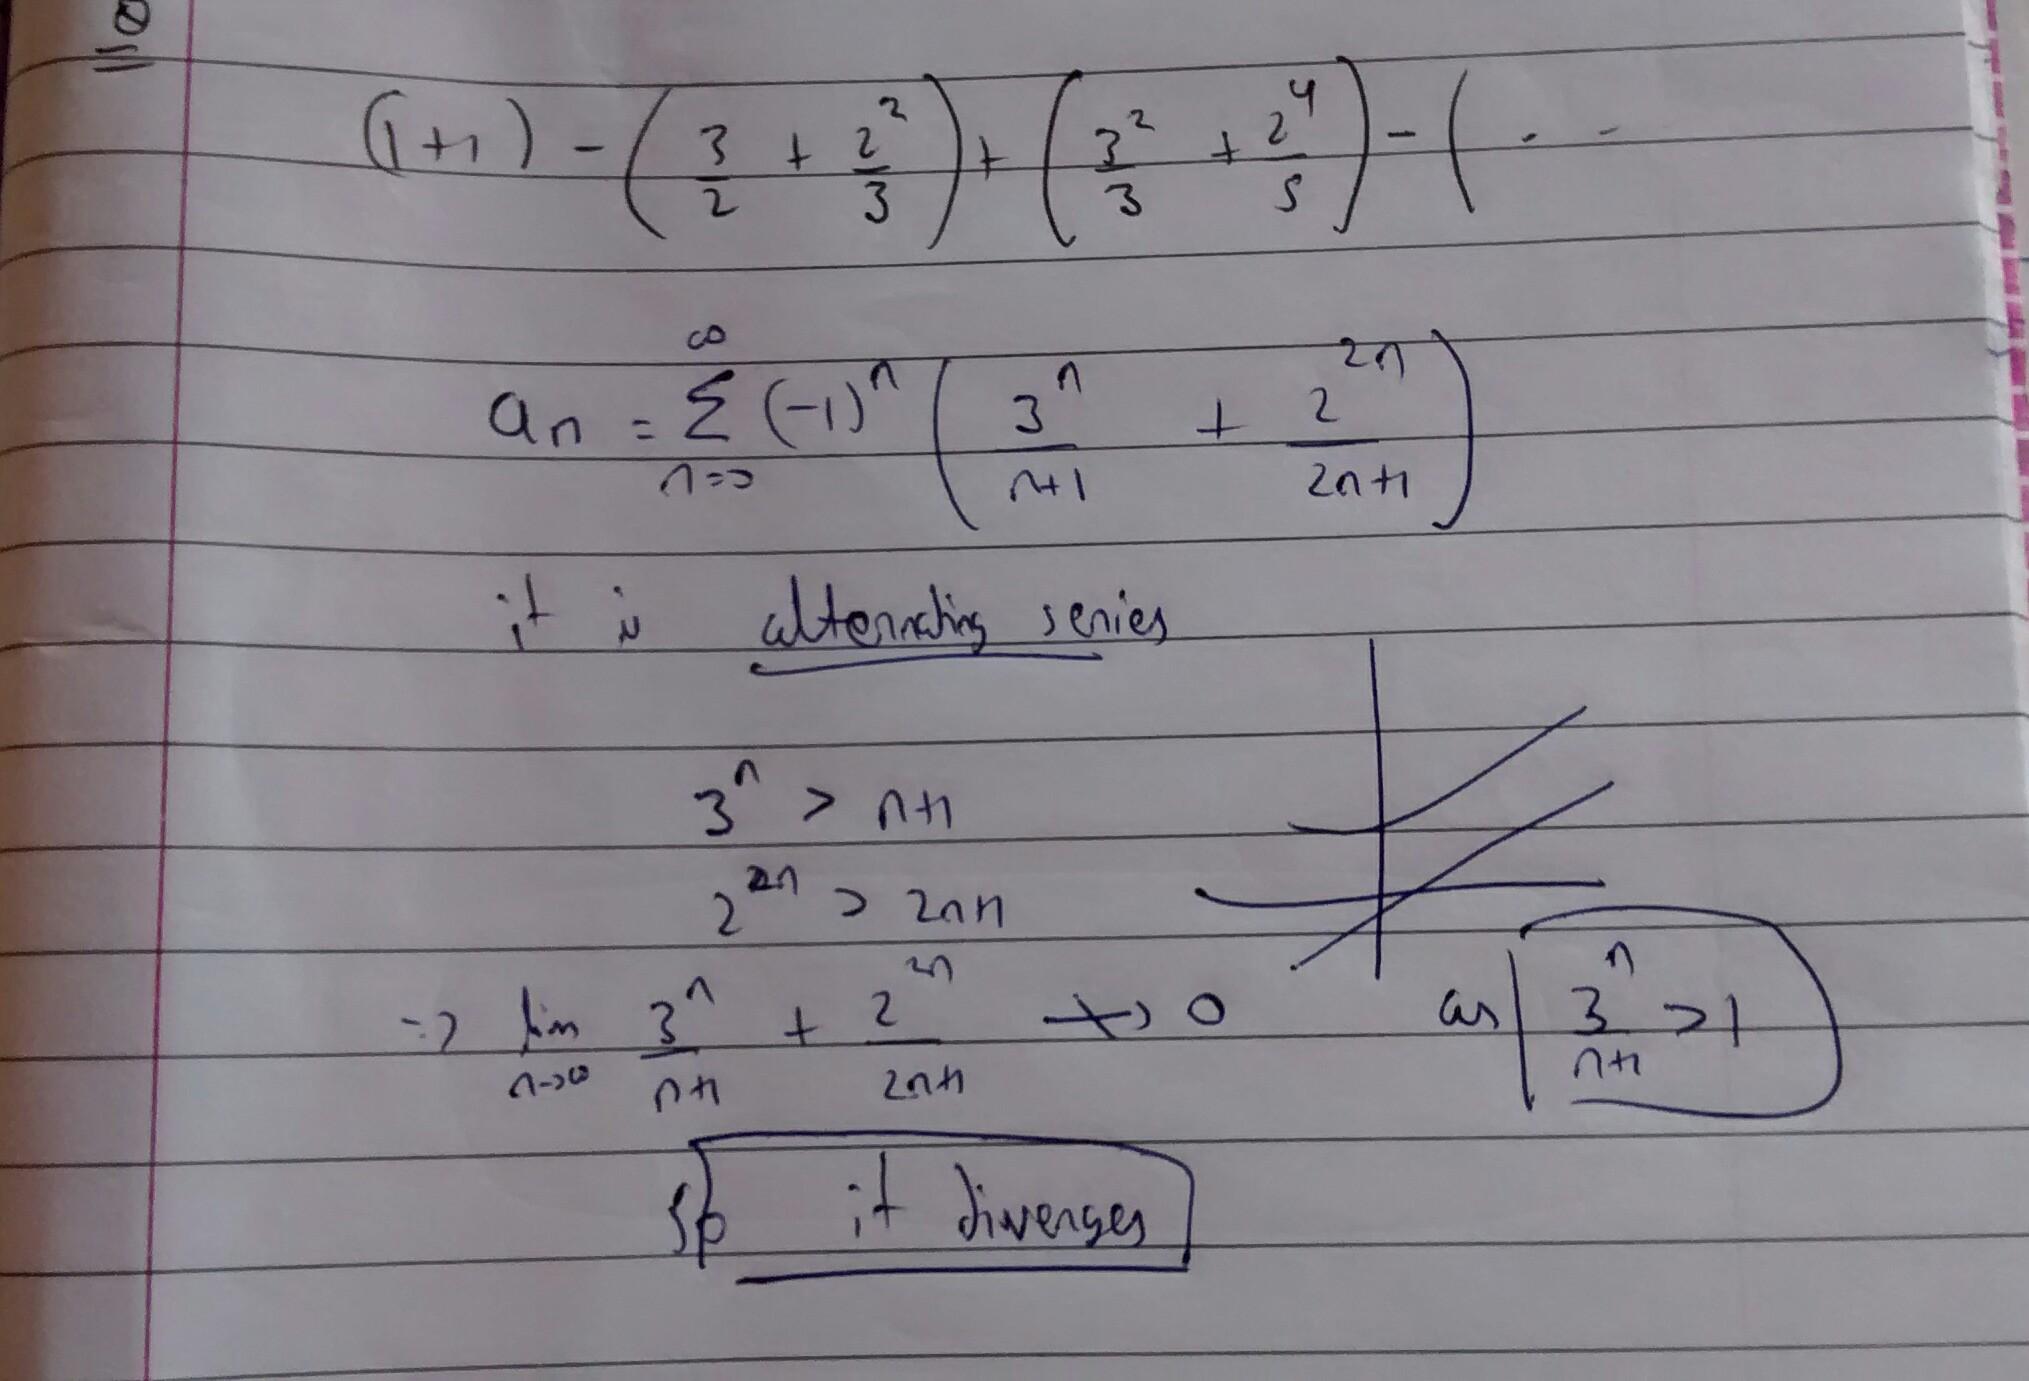 (1+1) - (3/2 + 2²/3) + (3²/3 + 2⁴/5) - ( - -
aₙ = ∑_{n=0}^{∞} (-1)ⁿ (3ⁿ/(n+1) + 2²ⁿ/(2n+1))
it is alternating series
3ⁿ > n+1
2²ⁿ > 2n+1
=> lim_{n→∞} 3ⁿ/(n+1) + 2²ⁿ/(2n+1) ↛ 0 as 3ⁿ/(n+1) > 1
So it diverges